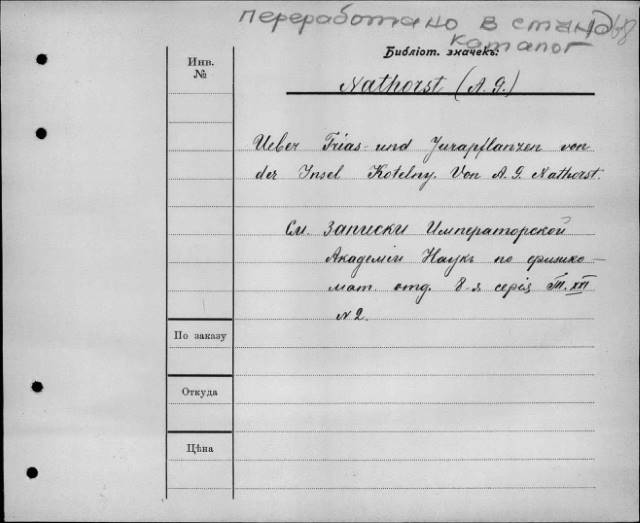 переработано в станд
каталог
Инв.
№
Библіот. значекъ:
Nathorst (A. G.)
Ueber Trias- und Jurapflanzen von
der Insel Kotelny. Von A. G. Nathorst.
См. Записки Императорской
Академіи Наукъ по физико-
мат. отд. 8-я серія Т. XXI
№ 2.
По заказу
Откуда
Цѣна